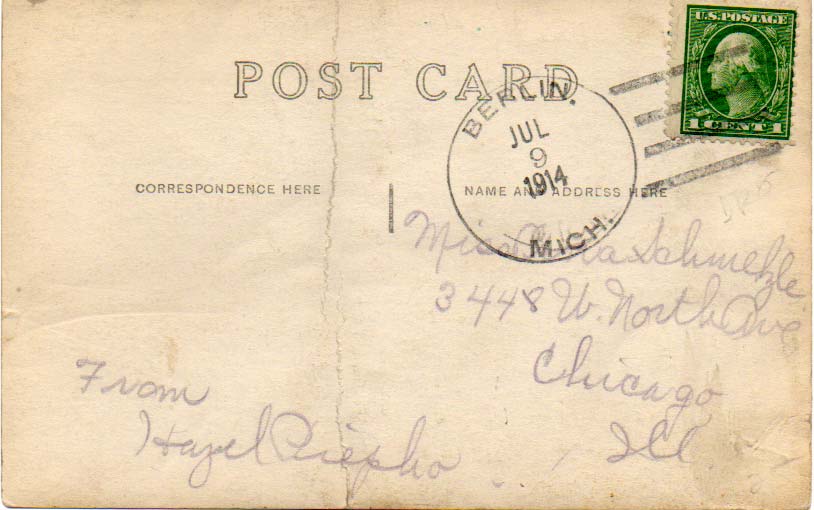 U.S. POSTAGE
1 CENT 1
POST CARD
BERLIN.
JUL
9
1914
MICH.
CORRESPONDENCE HERE
NAME AND ADDRESS HERE
Miss Schmehzle
3448 W. North Ave
Chicago
Ill
From
Hazel Piepho